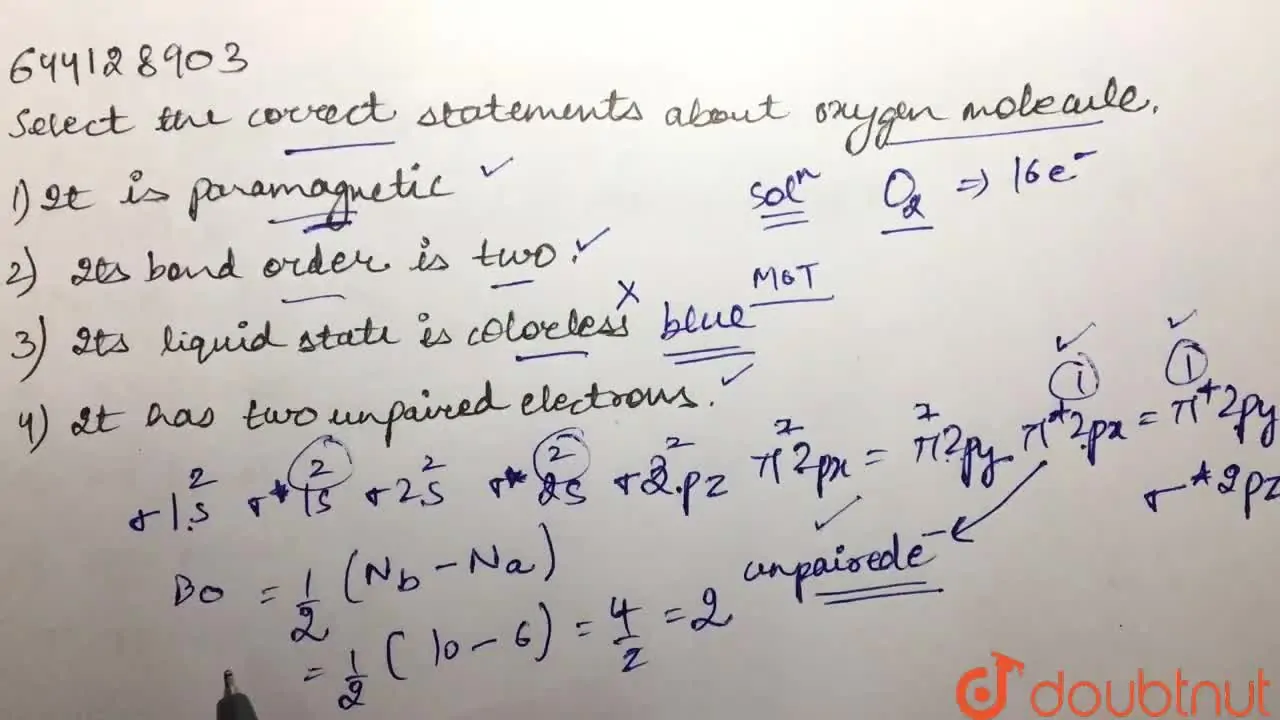 644128903
Select the correct statements about oxygen molecule.
1) It is paramagnetic ✓
Solⁿ O₂ ⇒ 16e⁻
2) Its bond order is two. ✓
MOT
3) Its liquid state is colorless × blue
4) It has two unpaired electrons. ✓
σ1s² σ*1s² σ2s² σ*2s² σ2pz² π2px² = π2py² π*2px¹ = π*2py¹
σ*2pz
unpaired e⁻
BO = 1/2 (Nb - Na)
= 1/2 (10 - 6) = 4/2 = 2
doubtnut